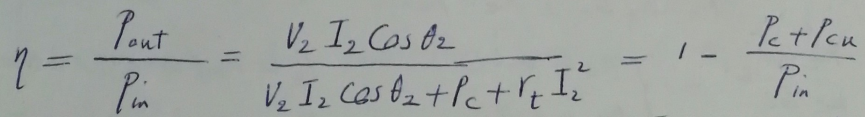 η = P_out / P_in = V_2 I_2 Cos θ_2 / (V_2 I_2 Cos θ_2 + P_c + r_t I_2^2) = 1 - (P_c + P_cu) / P_in